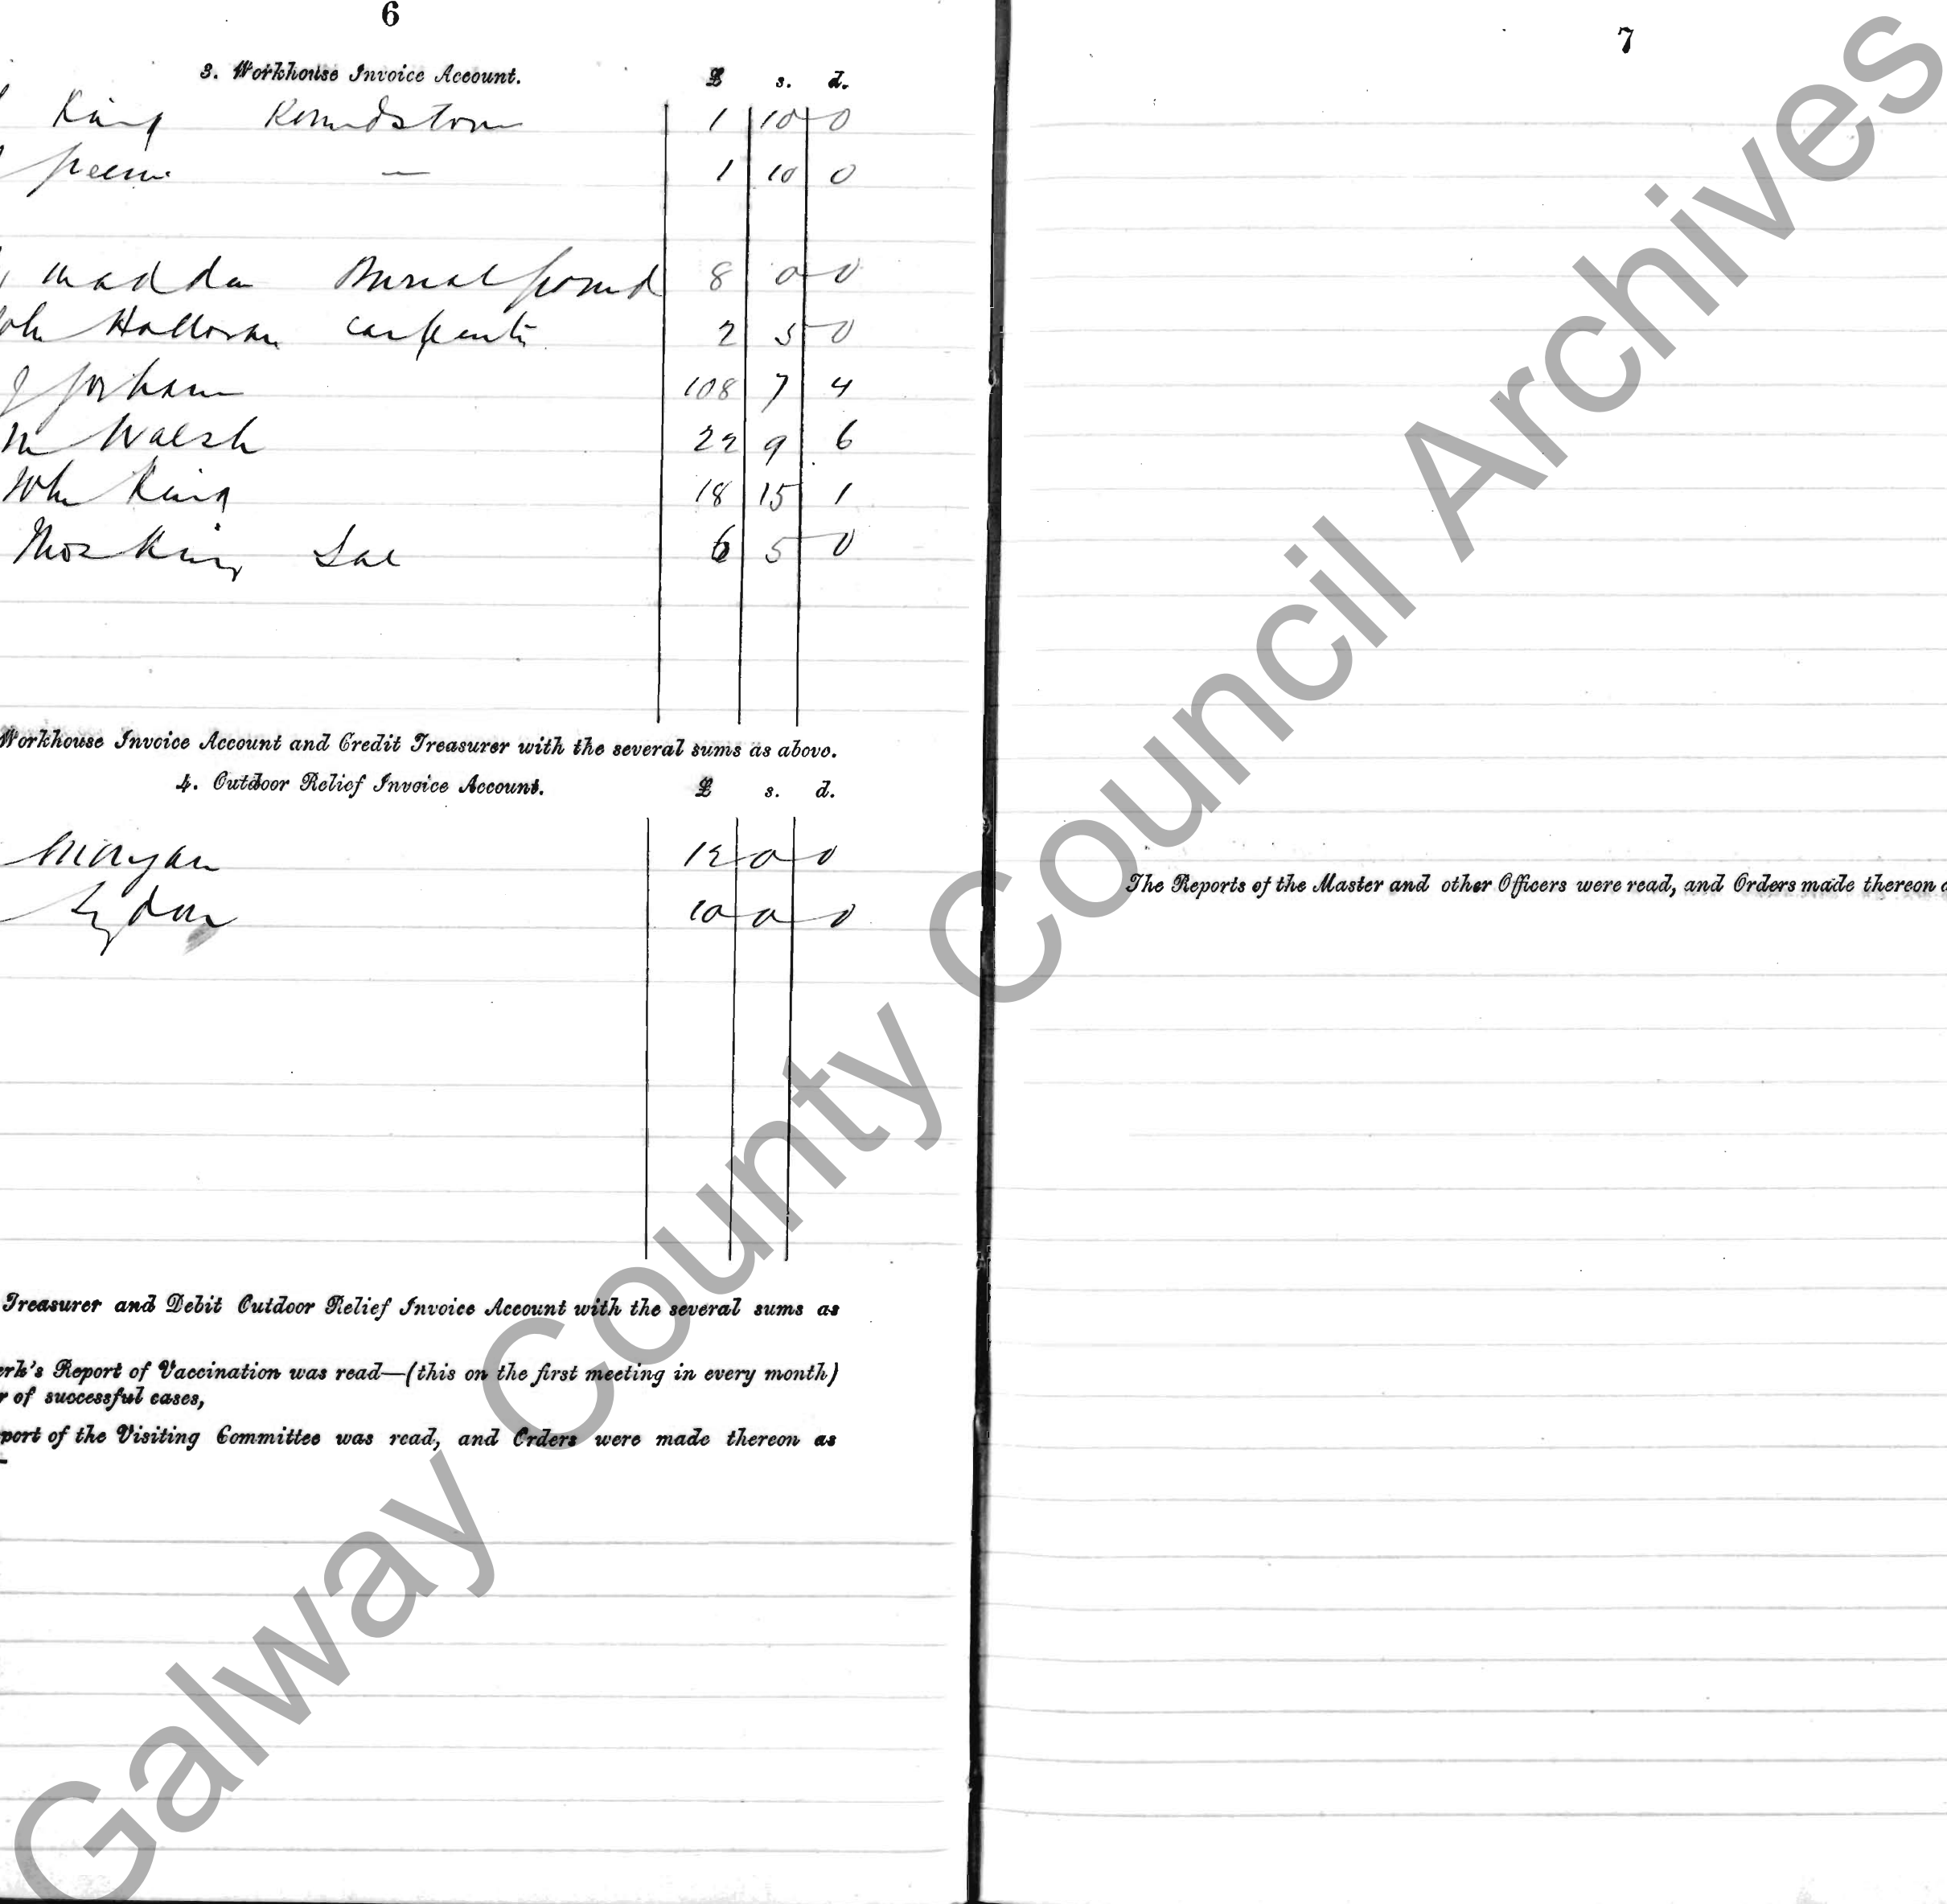 6
3. Workhouse Invoice Account. £ s. d.
King Roundstone 1 10 0
Greene — 1 10 0
Madden Burial ground 8 0 0
John Halloran carpenter 2 5 0
J Gorham 108 7 4
M Walsh 22 9 6
John King 18 15 1
Thos King 6 5 0
Workhouse Invoice Account and Credit Treasurer with the several sums as above.
4. Outdoor Relief Invoice Account. £ s. d.
Mongan 12 0 0
Lydon 10 0 0
Treasurer and Debit Outdoor Relief Invoice Account with the several sums as
erk's Report of Vaccination was read—(this on the first meeting in every month)
r of successful cases,
port of the Visiting Committee was read, and Orders were made thereon as
7
The Reports of the Master and other Officers were read, and Orders made thereon a
Galway County Council Archives